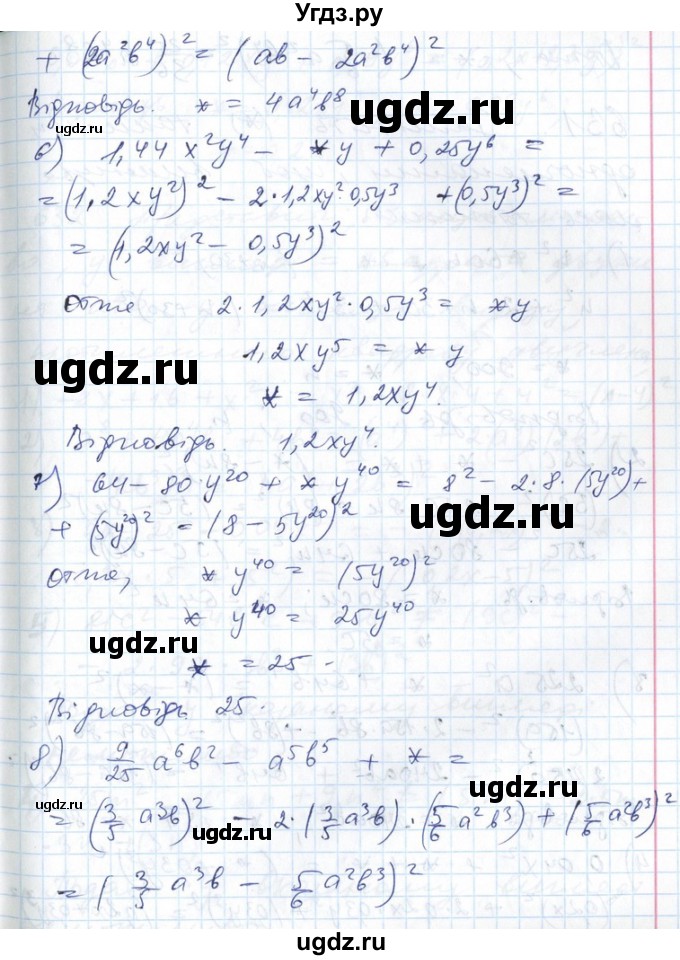 Угдз.ру
+ (2a²b⁴)² = (ab - 2a²b⁴)²
Відповідь. * = 4a⁴b⁸
ugdz.ru
ugdz.ru
6) 1,44 x²y⁴ - * y + 0,25y⁶ =
= (1,2xy²)² - 2·1,2xy²·0,5y³ + (0,5y³)² =
= (1,2xy² - 0,5y³)²
Отже 2·1,2xy²·0,5y³ = * y
ugdz.ru
1,2xy⁵ = * y
* = 1,2xy⁴.
Відповідь. 1,2xy⁴.
7) 64 - 80 y²⁰ + * y⁴⁰ = 8² - 2·8·(5y²⁰) +
ugdz.ru
+ (5y²⁰)² = (8 - 5y²⁰)²
Отже, * y⁴⁰ = (5y²⁰)²
* y⁴⁰ = 25y⁴⁰
ugdz.ru
* = 25.
Відповідь 25.
8) 9/25 a⁶b² - a⁵b⁵ + * =
ugdz.ru
ugdz.ru
= (3/5 a³b)² - 2·(3/5 a³b)·(5/6 a²b³) + (5/6 a²b³)²
ugdz.ru
= (3/5 a³b - 5/6 a²b³)²
ugdz.ru